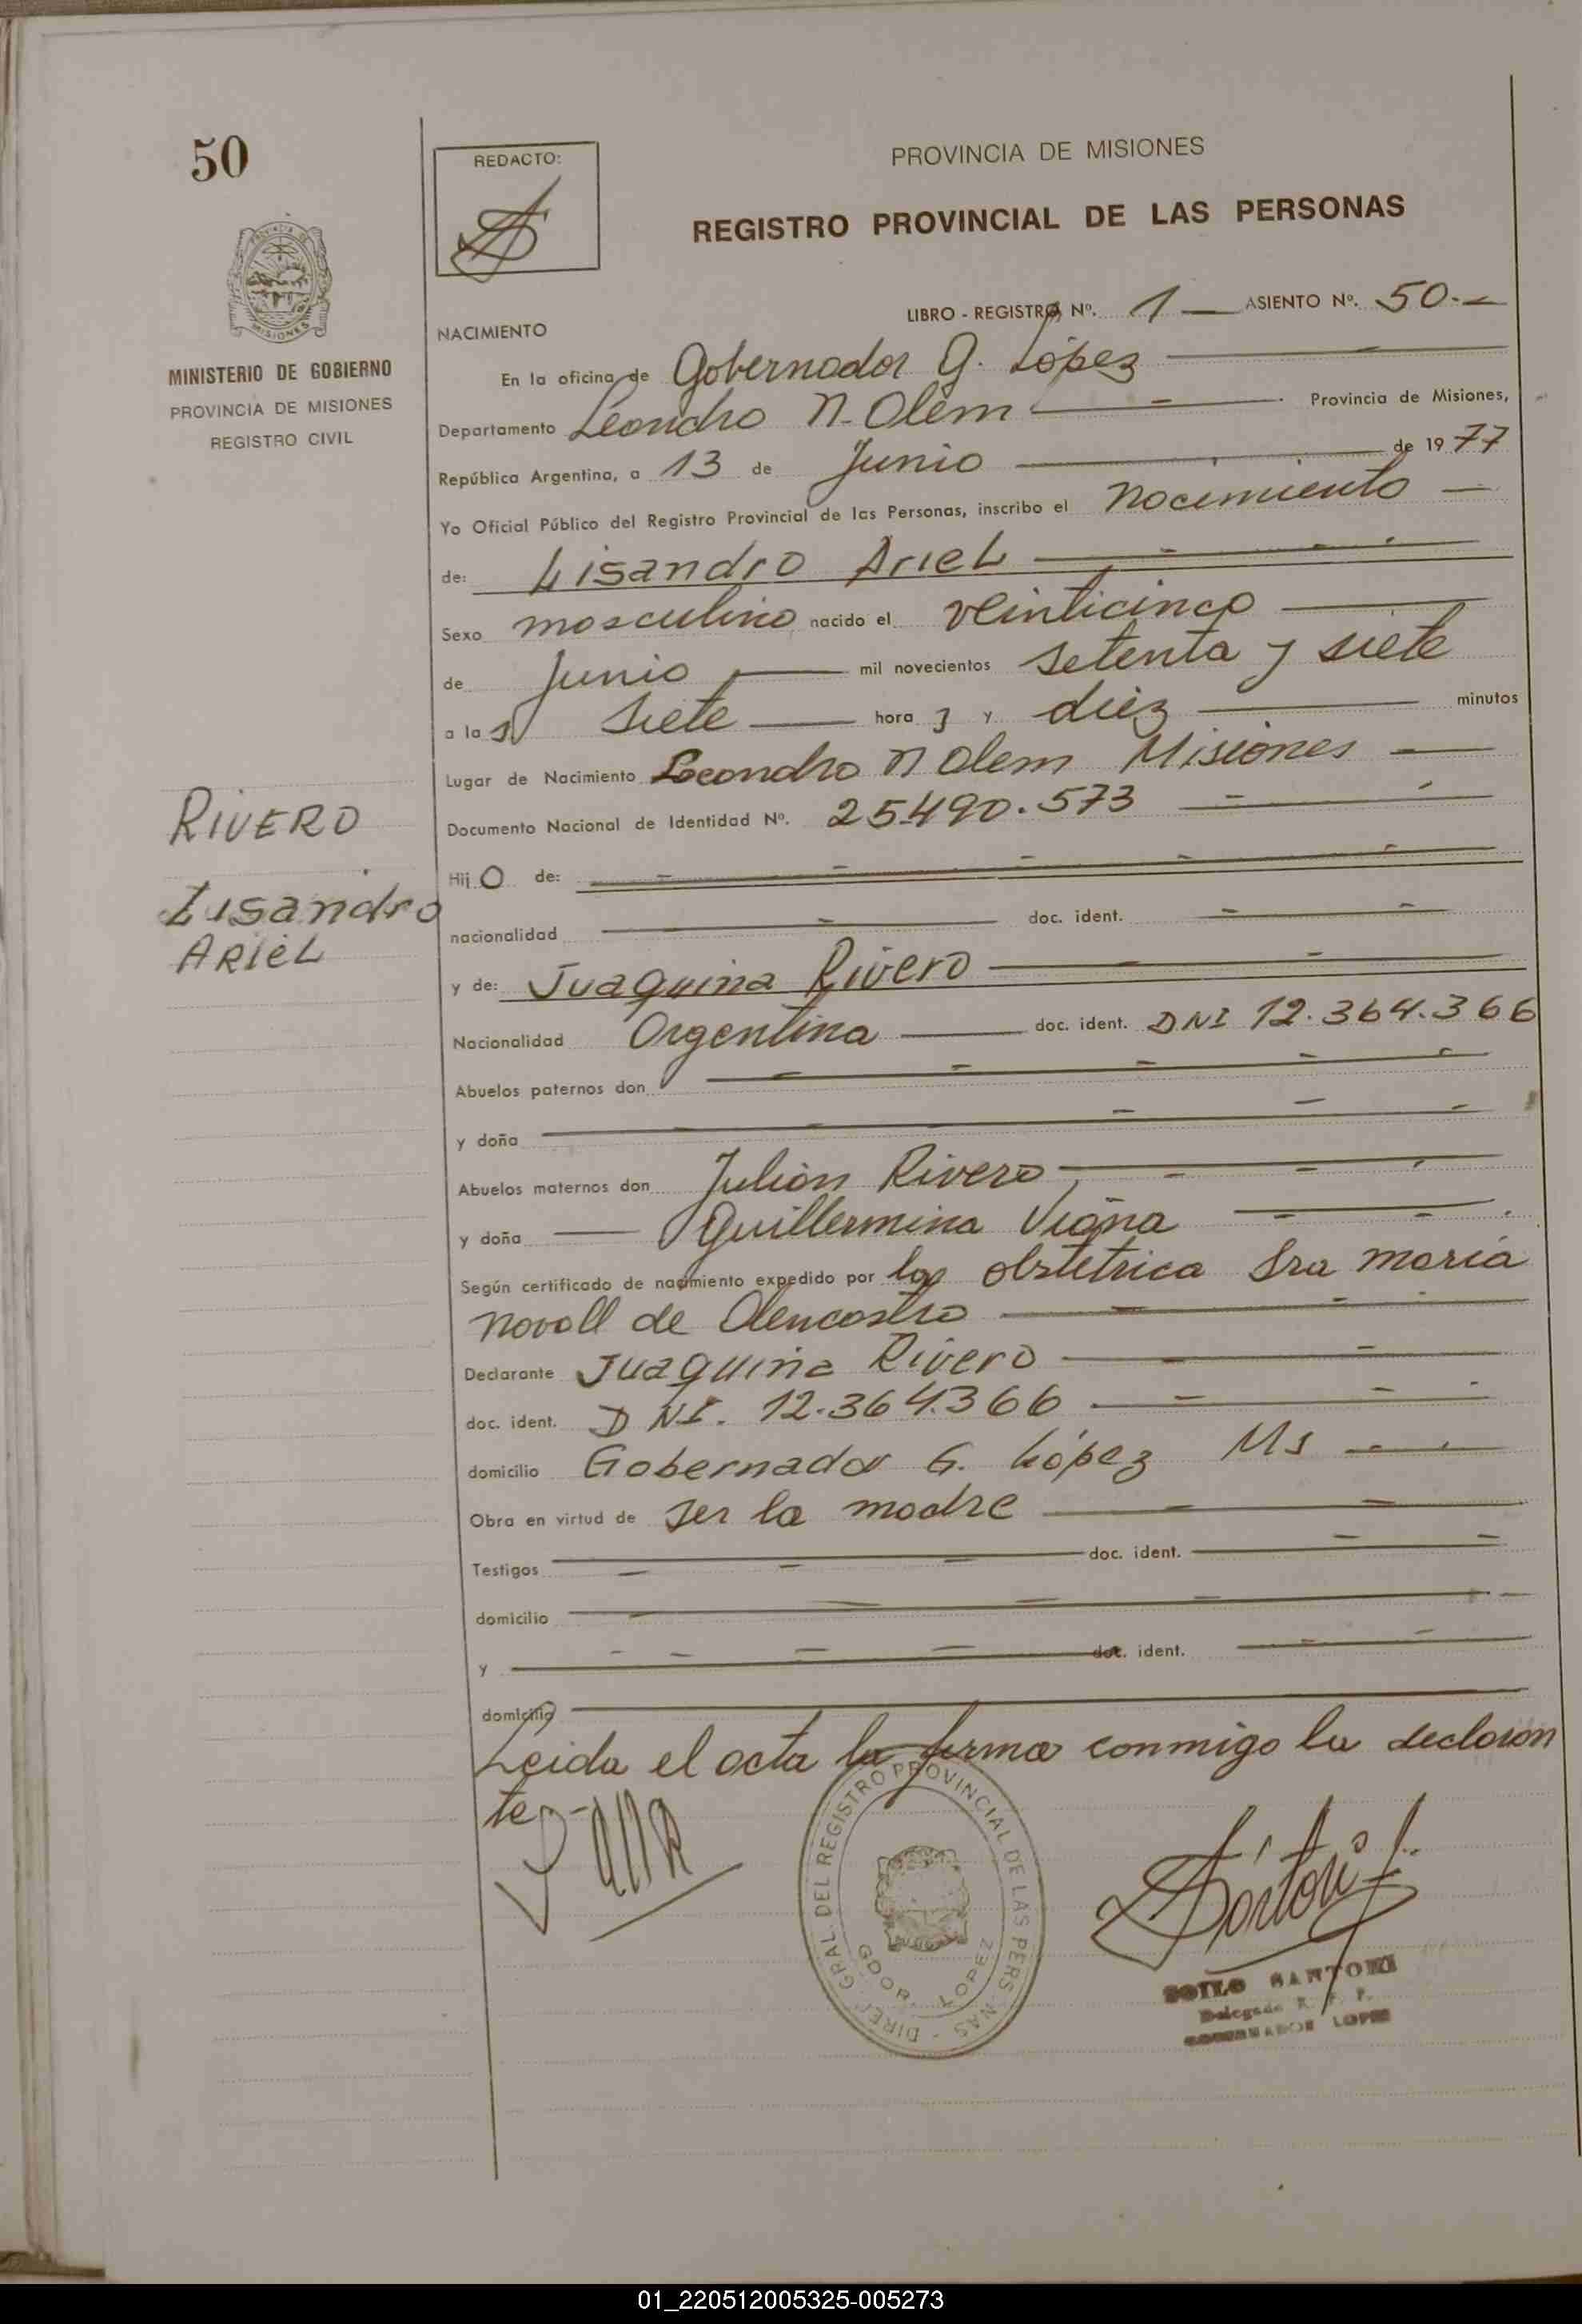 50
REDACTO:
PROVINCIA DE MISIONES
REGISTRO PROVINCIAL DE LAS PERSONAS
MINISTERIO DE GOBIERNO
PROVINCIA DE MISIONES
REGISTRO CIVIL
NACIMIENTO
LIBRO - REGISTRO Nº. 1 — ASIENTO Nº. 50.-
En la oficina de Gobernador G. López
Departamento Leandro N. Alem Provincia de Misiones,
República Argentina, a 13 de Junio de 1977
Yo Oficial Público del Registro Provincial de las Personas, inscribo el nacimiento
de: Lisandro Ariel
Sexo masculino nacido el veinticinco
de Junio mil novecientos setenta y siete
a las siete hora s y diez minutos
Lugar de Nacimiento Leandro N Alem Misiones
Documento Nacional de Identidad Nº. 25.490.573
RIVERO
Lisandro
ARIEL
Hij o de:
nacionalidad doc. ident.
y de: Juaquina Rivero
Nacionalidad Argentina doc. ident. DNI 12.364.366
Abuelos paternos don
y doña
Abuelos maternos don Julián Rivero
y doña Guillermina Viana
Según certificado de nacimiento expedido por la obstetrica Sra maria
Novall de Alencastro
Declarante Juaquina Rivero
doc. ident. DNI. 12.364.366
domicilio Gobernador G. López Ms
Obra en virtud de ser la madre
Testigos doc. ident.
domicilio
y doc. ident.
domicilio
Leida el acta la firma conmigo la declaran
te
DIREC. GRAL. DEL REGISTRO PROVINCIAL DE LAS PERSONAS
GDOR. LOPEZ
SOILO SARTORI
Delegado R. P. P.
GOBERNADOR LOPEZ
01_220512005325-005273